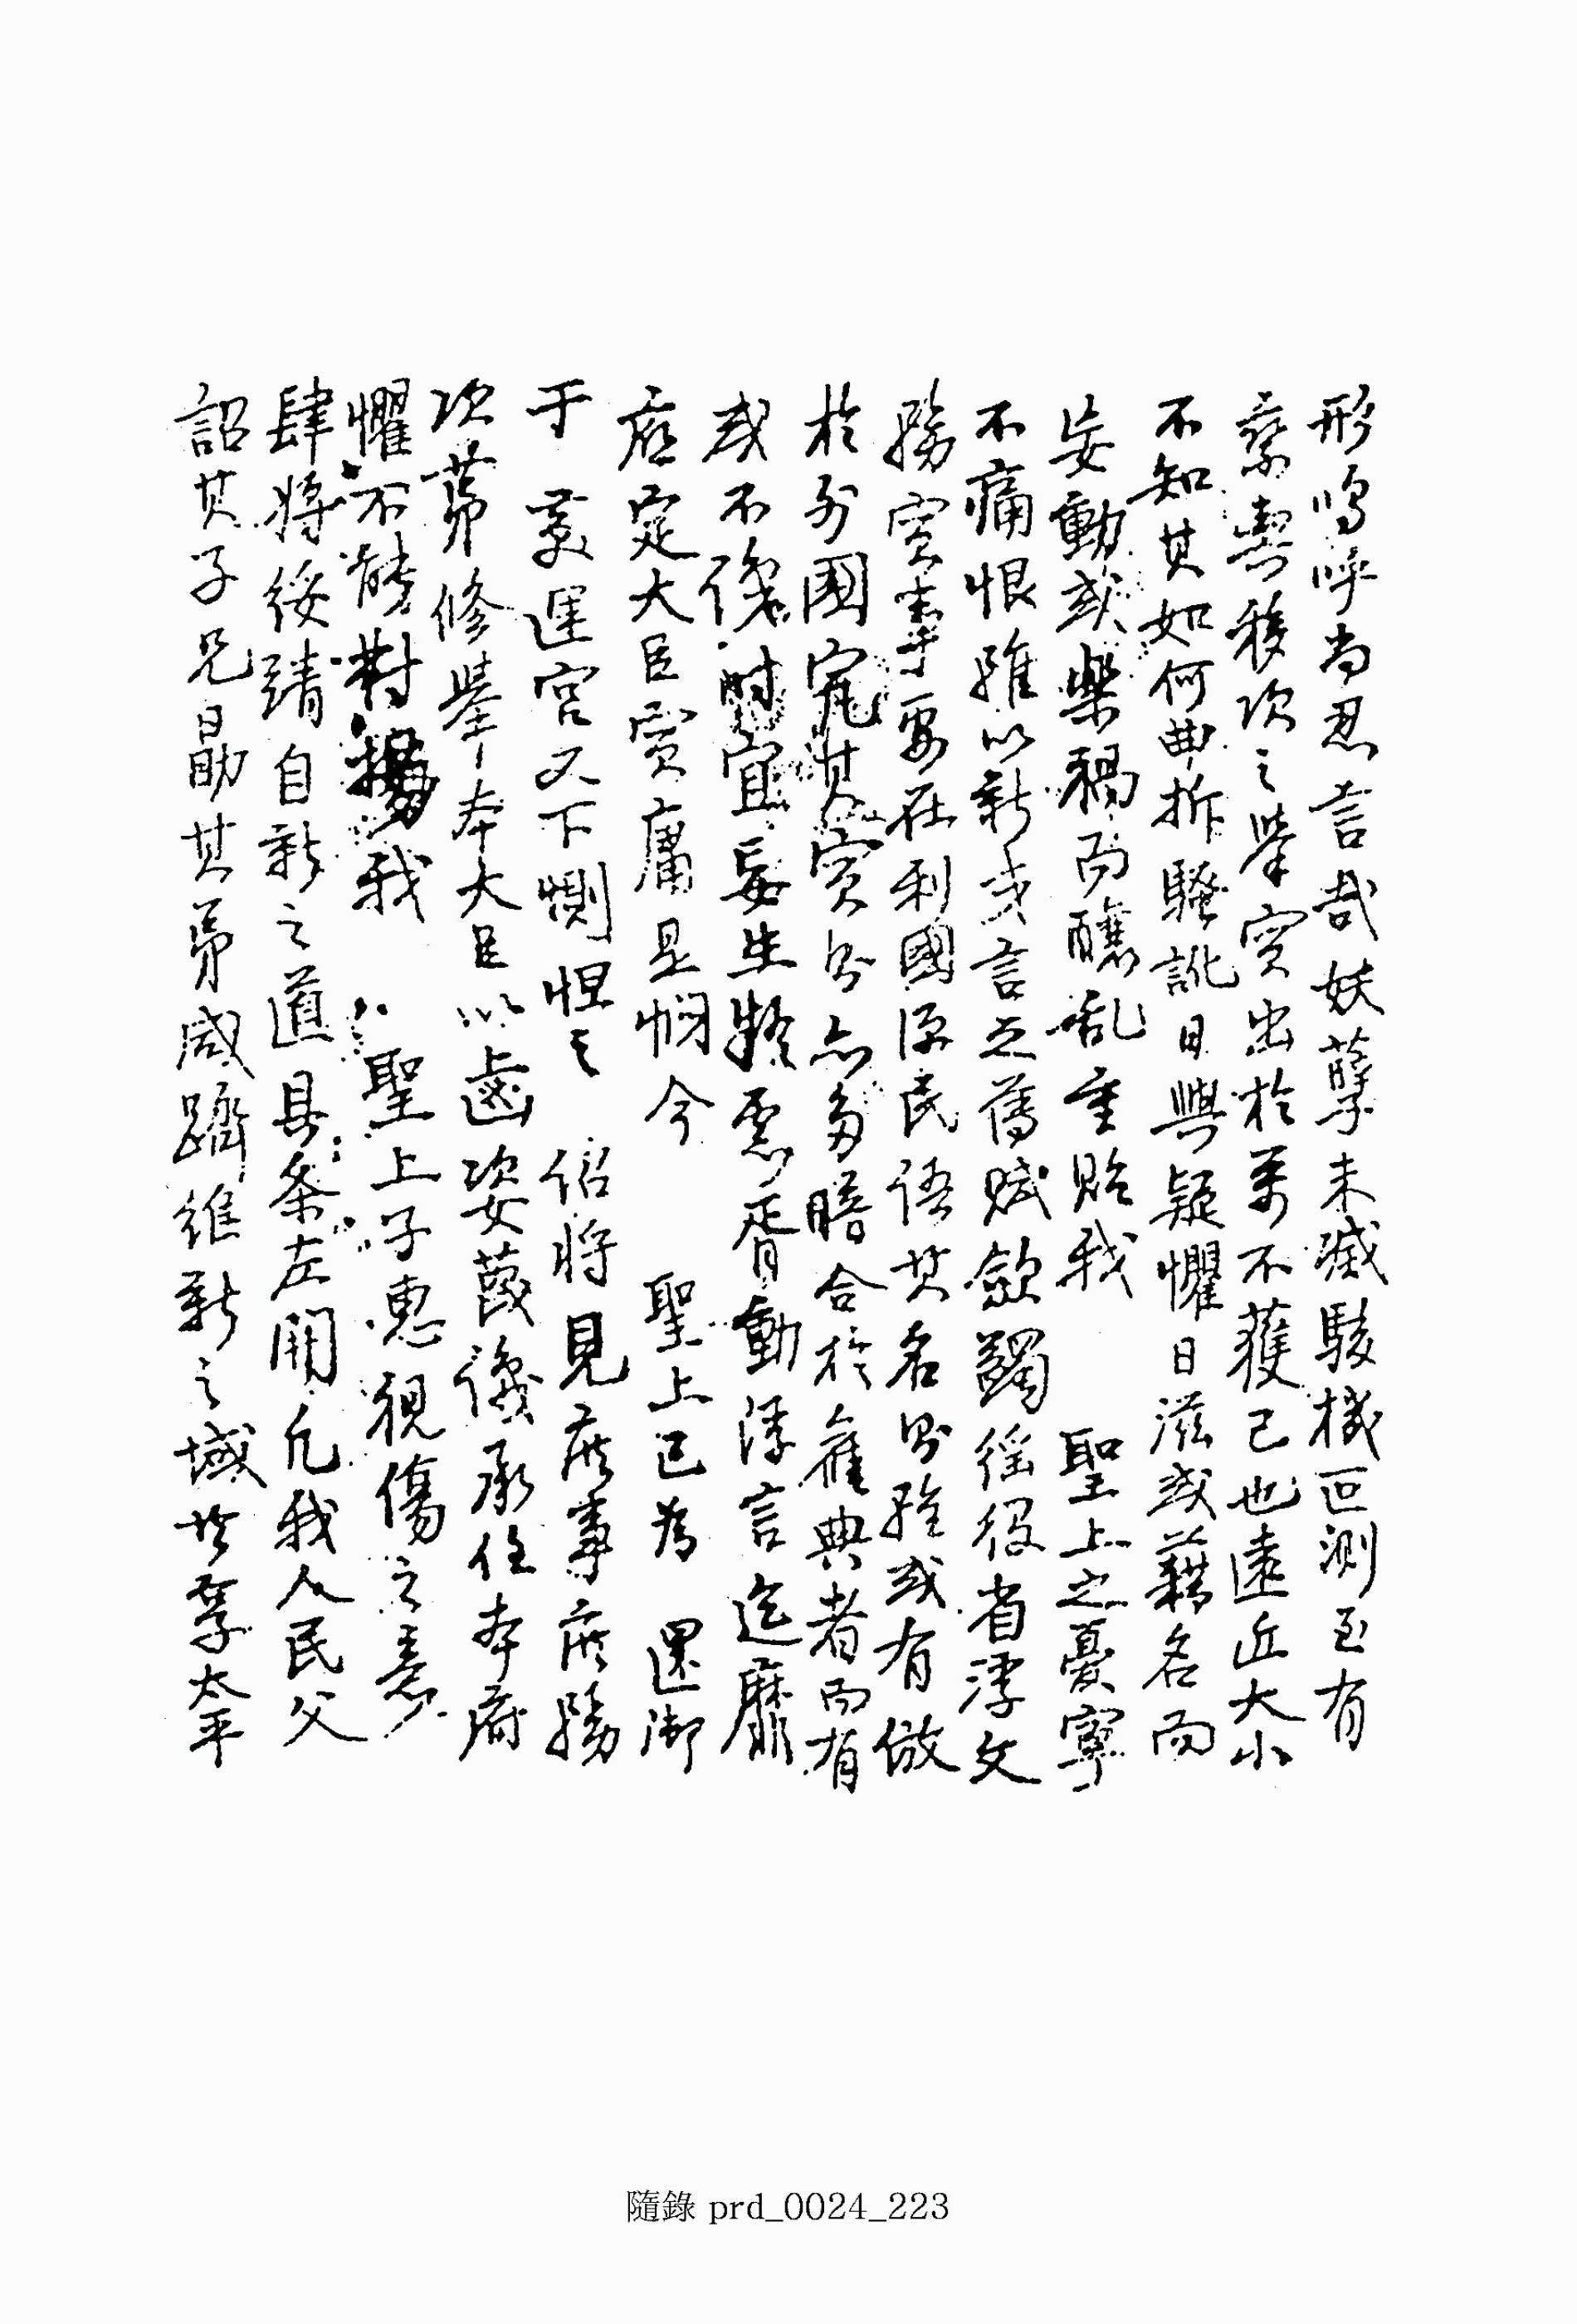 形嗚呼尚忍言哉妖孽未滅駭機叵測至有
乘輿移次之擧寔出於萬不獲已也遠近大小
不知其如何曲折騷訛日興疑懼日滋或藉名而
妄動或樂禍而釀乱重貽我 聖上之憂寧
不痛恨雖以新式言之舊賦歛蠲徭役省浮文
務實事要在利國深民語其名則雖或有倣
於列國究其實則亦多暗合於舊典者而有
或不後時宜妄生疑惑胥動浮言迄靡
底定大臣實庸是憫今 聖上已爲 還御
于 慶運宮又下惻怛之 詔將見庶事庶務
次第修擧本大臣以鹵姿蔑識承任本府
懼不能對揚我 聖上子惠視傷之意
肆將綏靖自新之道具条左開凡我人民父
詔其子兄勖其弟咸躋維新之域共享太平
隨錄 prd_0024_223